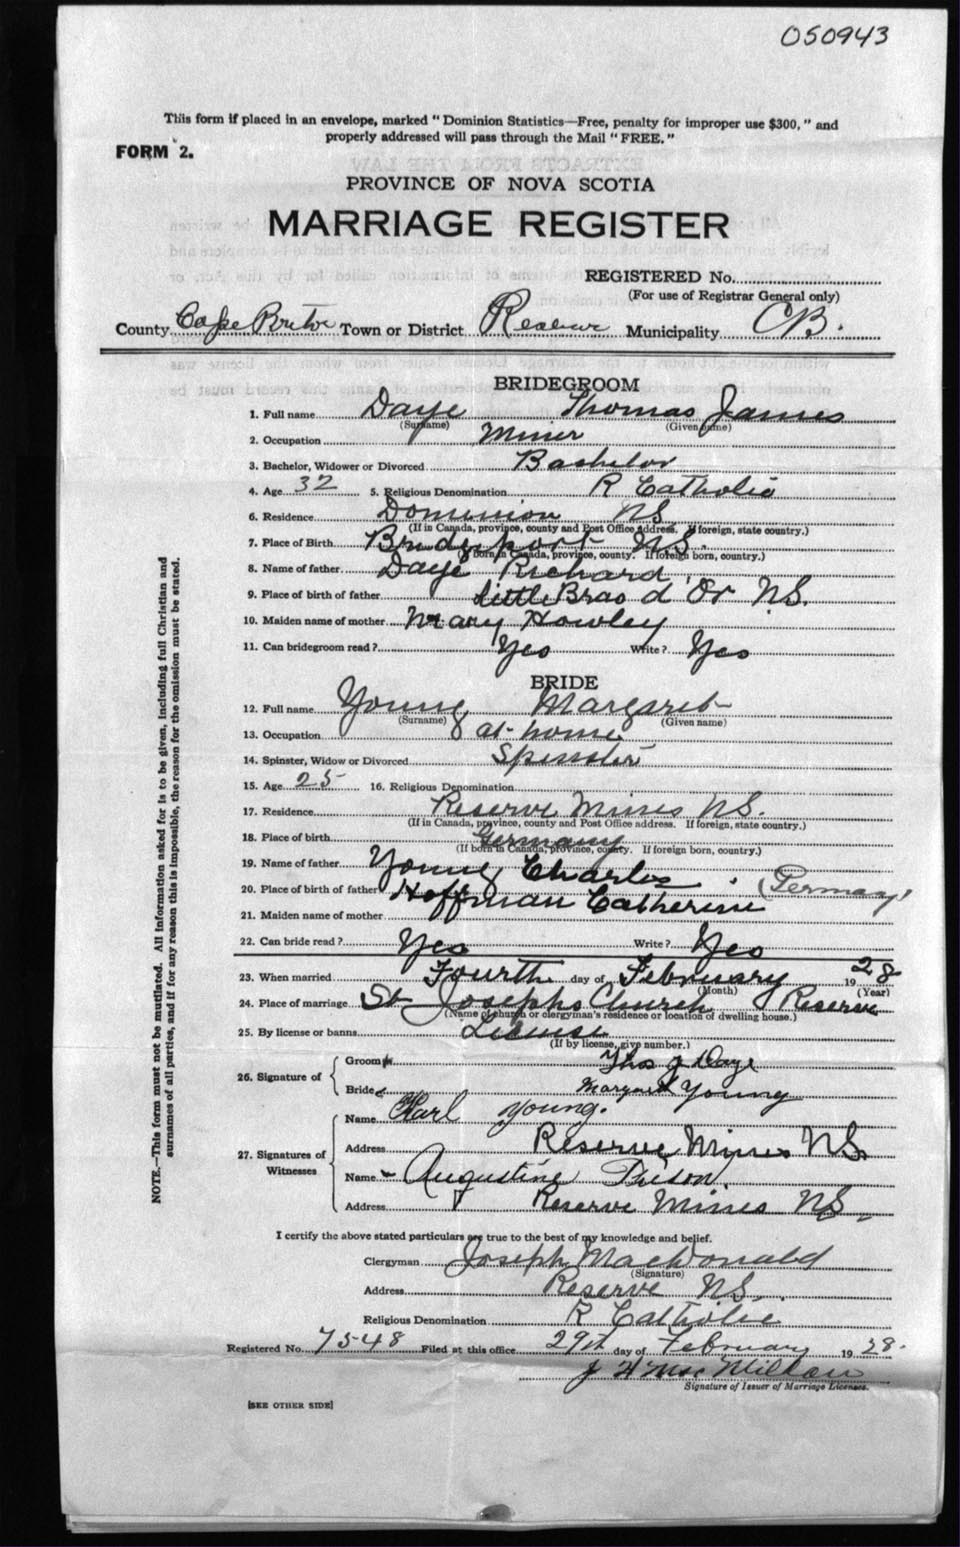 050943
This form if placed in an envelope, marked "Dominion Statistics—Free, penalty for improper use $300," and
properly addressed will pass through the Mail "FREE."
FORM 2.
PROVINCE OF NOVA SCOTIA
MARRIAGE REGISTER
REGISTERED No.
(For use of Registrar General only)
County Cape Breton Town or District Reserve Municipality CB.
BRIDEGROOM
1. Full name Daye Thomas James
(Surname) (Given name)
2. Occupation Miner
3. Bachelor, Widower or Divorced Bachelor
4. Age 32 5. Religious Denomination R Catholic
6. Residence Dominion NS
(If in Canada, province, county and Post Office address. If foreign, state country.)
7. Place of Birth Bridgeport N.S.
(If born in Canada, province, county. If foreign born, country.)
8. Name of father Daye Richard
9. Place of birth of father Little Bras d'Or N.S.
10. Maiden name of mother Mary Howley
11. Can bridegroom read? Yes Write? Yes
BRIDE
12. Full name Young Margaret
(Surname) (Given name)
13. Occupation at home
14. Spinster, Widow or Divorced Spinster
15. Age 25 16. Religious Denomination
17. Residence Reserve Mines NS.
(If in Canada, province, county and Post Office address. If foreign, state country.)
18. Place of birth Germany
(If born in Canada, province, county. If foreign born, country.)
19. Name of father Young Charles (Germany)
20. Place of birth of father Hoffman Catherine
21. Maiden name of mother
22. Can bride read? Yes Write? Yes
23. When married Fourth day of February 1928
(Month) (Year)
24. Place of marriage St Josephs Church Reserve
(Name of church or clergyman's residence or location of dwelling house.)
25. By license or banns License
(If by license, give number.)
26. Signature of Groom Thos J Daye
Bride Margaret Young
27. Signatures of Witnesses Name Karl Young.
Address Reserve Mines NS
Name Augustine
Address Reserve Mines NS
I certify the above stated particulars are true to the best of my knowledge and belief.
Clergyman Joseph MacDonald
(Signature)
Address Reserve NS.
Religious Denomination R Catholic
Registered No. 7548 Filed at this office 29th day of February 1928.
J H MacMillan
Signature of Issuer of Marriage Licenses.
[SEE OTHER SIDE]
NOTE.—This form must not be mutilated. All information asked for is to be given, including full Christian and
surnames of all parties, and if for any reason this is impossible, the reason for the omission must be stated.